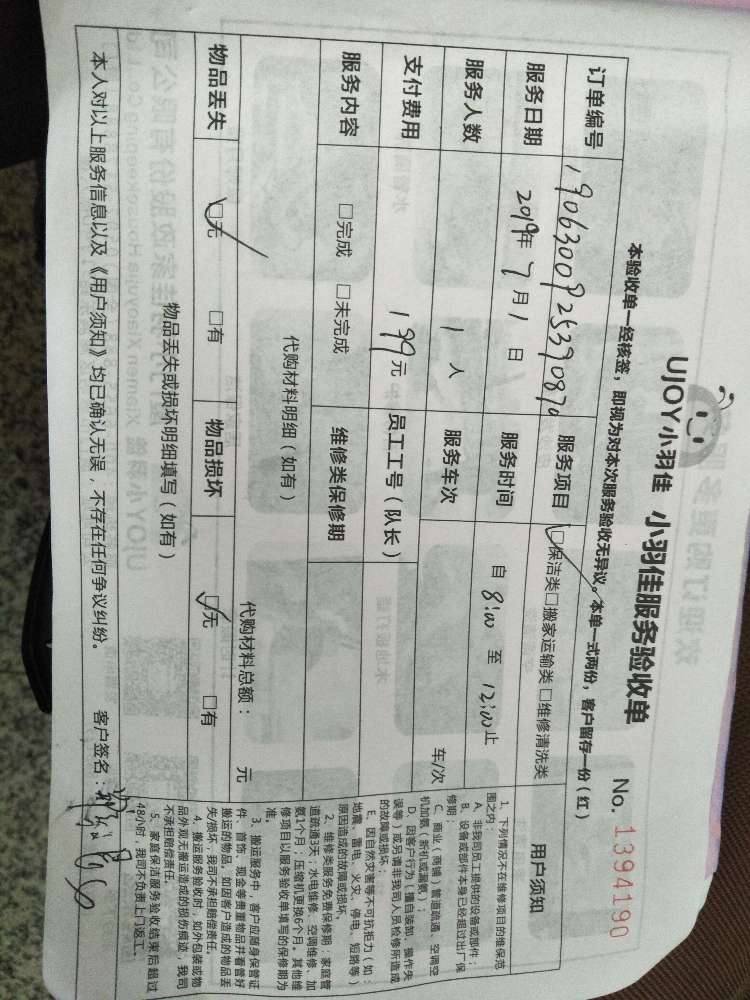 UJOY小羽佳 小羽佳服务验收单 No. 1394190
本验收单一经核签，即视为对本次服务验收无异议。本单一式两份，客户留存一份（红）
订单编号 服务项目 □保洁类□搬家运输类□维修清洗类
服务日期 2019年7月1日 服务时间 自 8:00 至 12:00止
服务人数 1 人 服务车次 车/次
支付费用 199元 员工工号（队长）
服务内容 □完成 □未完成 维修类保修期
代购材料明细（如有）
代购材料总额： 元
物品丢失 □无 □有 物品损坏 □无 □有
物品丢失或损坏明细填写（如有）
本人对以上服务信息以及《用户须知》均已确认无误，不存在任何争议纠纷。 客户签名：
用户须知
1、下列情况不在维修项目的维保范
围之内：
A、非我司员工提供的设备或部件；
B、设备或部件本身已经超过出厂保
修期；
C、商业（商铺）管道疏通、空调空
机加氨（新机或漏氨）；
D、因客户行为（擅自装卸、操作失
误等）或另请非我司人员检修所造成
的故障或损坏；
E、因自然灾害等不可抗拒力（如：
地震、雷电、火灾、停电、短路等）
原因造成的故障或损坏。
2、维修类服务免费保修期：家庭管
道疏通3天；水电维修、空调维修、加
氨1个月；压缩机更换6个月。其他维
修项目以服务验收单填写的保修期为
准。
3、搬运服务中，客户应随身保管证
件、首饰、现金等贵重物品并看管好
搬运的物品，如因客户造成的物品丢
失/损坏，我司不承担赔偿责任。
4、搬运服务验收时，如外包装或物
品外观无搬运造成的损伤痕迹，我司
不承担赔偿责任。
5、家庭保洁服务验收结束后超过
48小时，我司不负责上门返工。